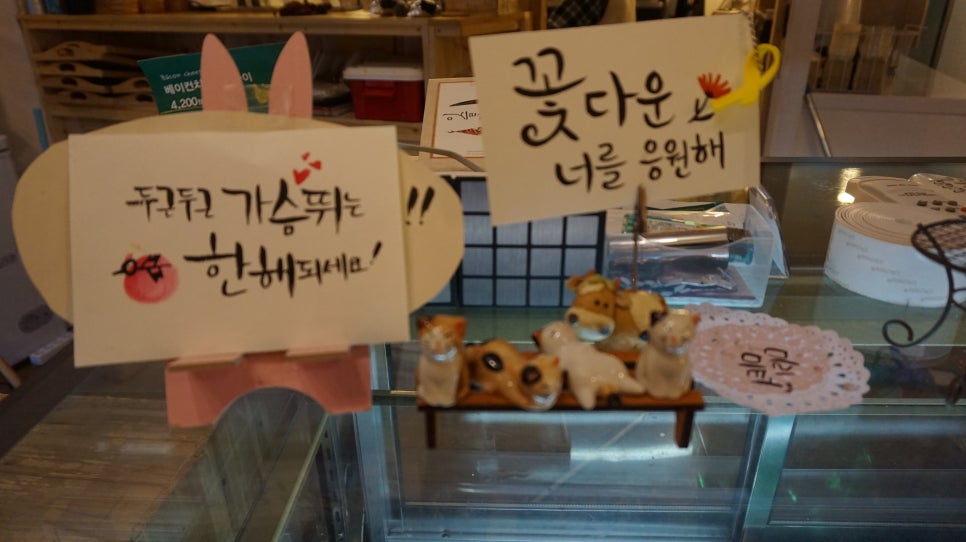 두근두근 가슴뛰는
한해되세요!
!!
꽃다운
너를 응원해
베이컨치
4,200